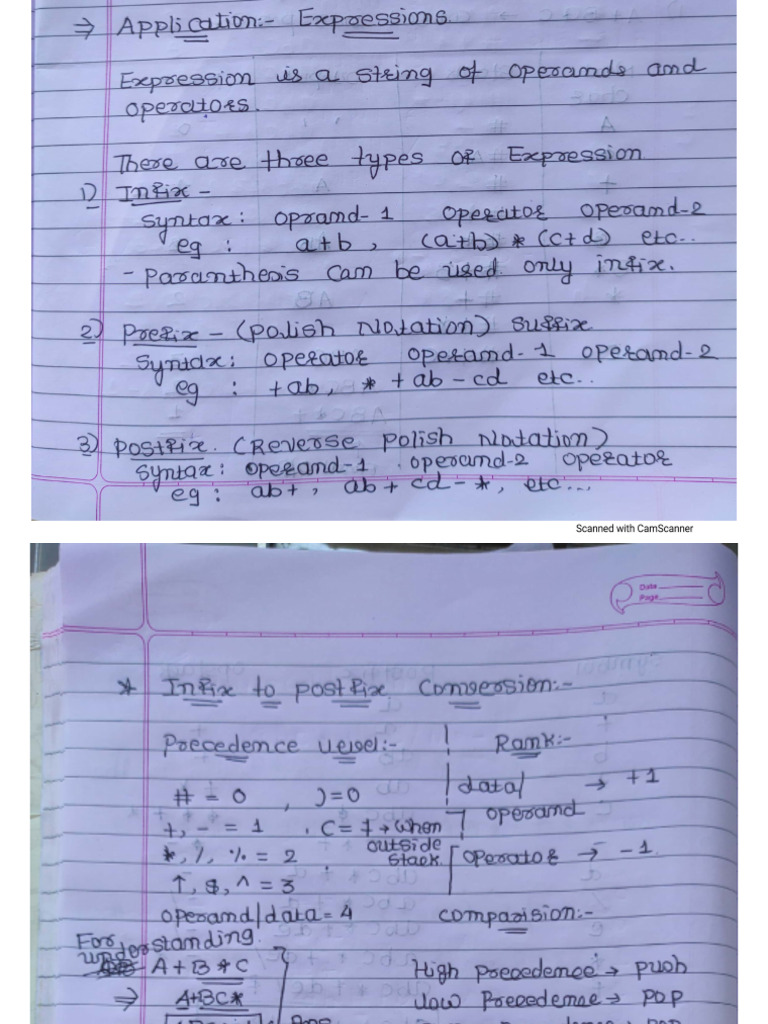 ⇒ Application:- Expressions.
Expression is a string of operands and
operators.
There are three types of Expression
1) Infix -
Syntax: oprand-1 operator operand-2
eg : a+b, (a+b) * (c+d) etc..
- Paranthesis can be used only infix.
2) Prefix - (Polish Notation) Suffix
Syntax: operator operand-1 operand-2
eg : +ab, * + ab - cd etc..
3) Postfix. (Reverse Polish Notation)
Syntax: operand-1 operand-2 operator
eg : ab+, ab + cd - *, etc...
Scanned with CamScanner
Date
Page
* Infix to postfix conversion:-
Precedence level:- Rank:-
# = 0 , )=0 data/ → +1
operand
+, - = 1 , ( = 7 → when
outside
stack.
*, /, % = 2 operator → -1
↑, $, ^ = 3
operand/data = 4 comparision:-
For
understanding.
A + B * C High precedence → push
⇒ A+BC* Low Precedense → POP
Ans